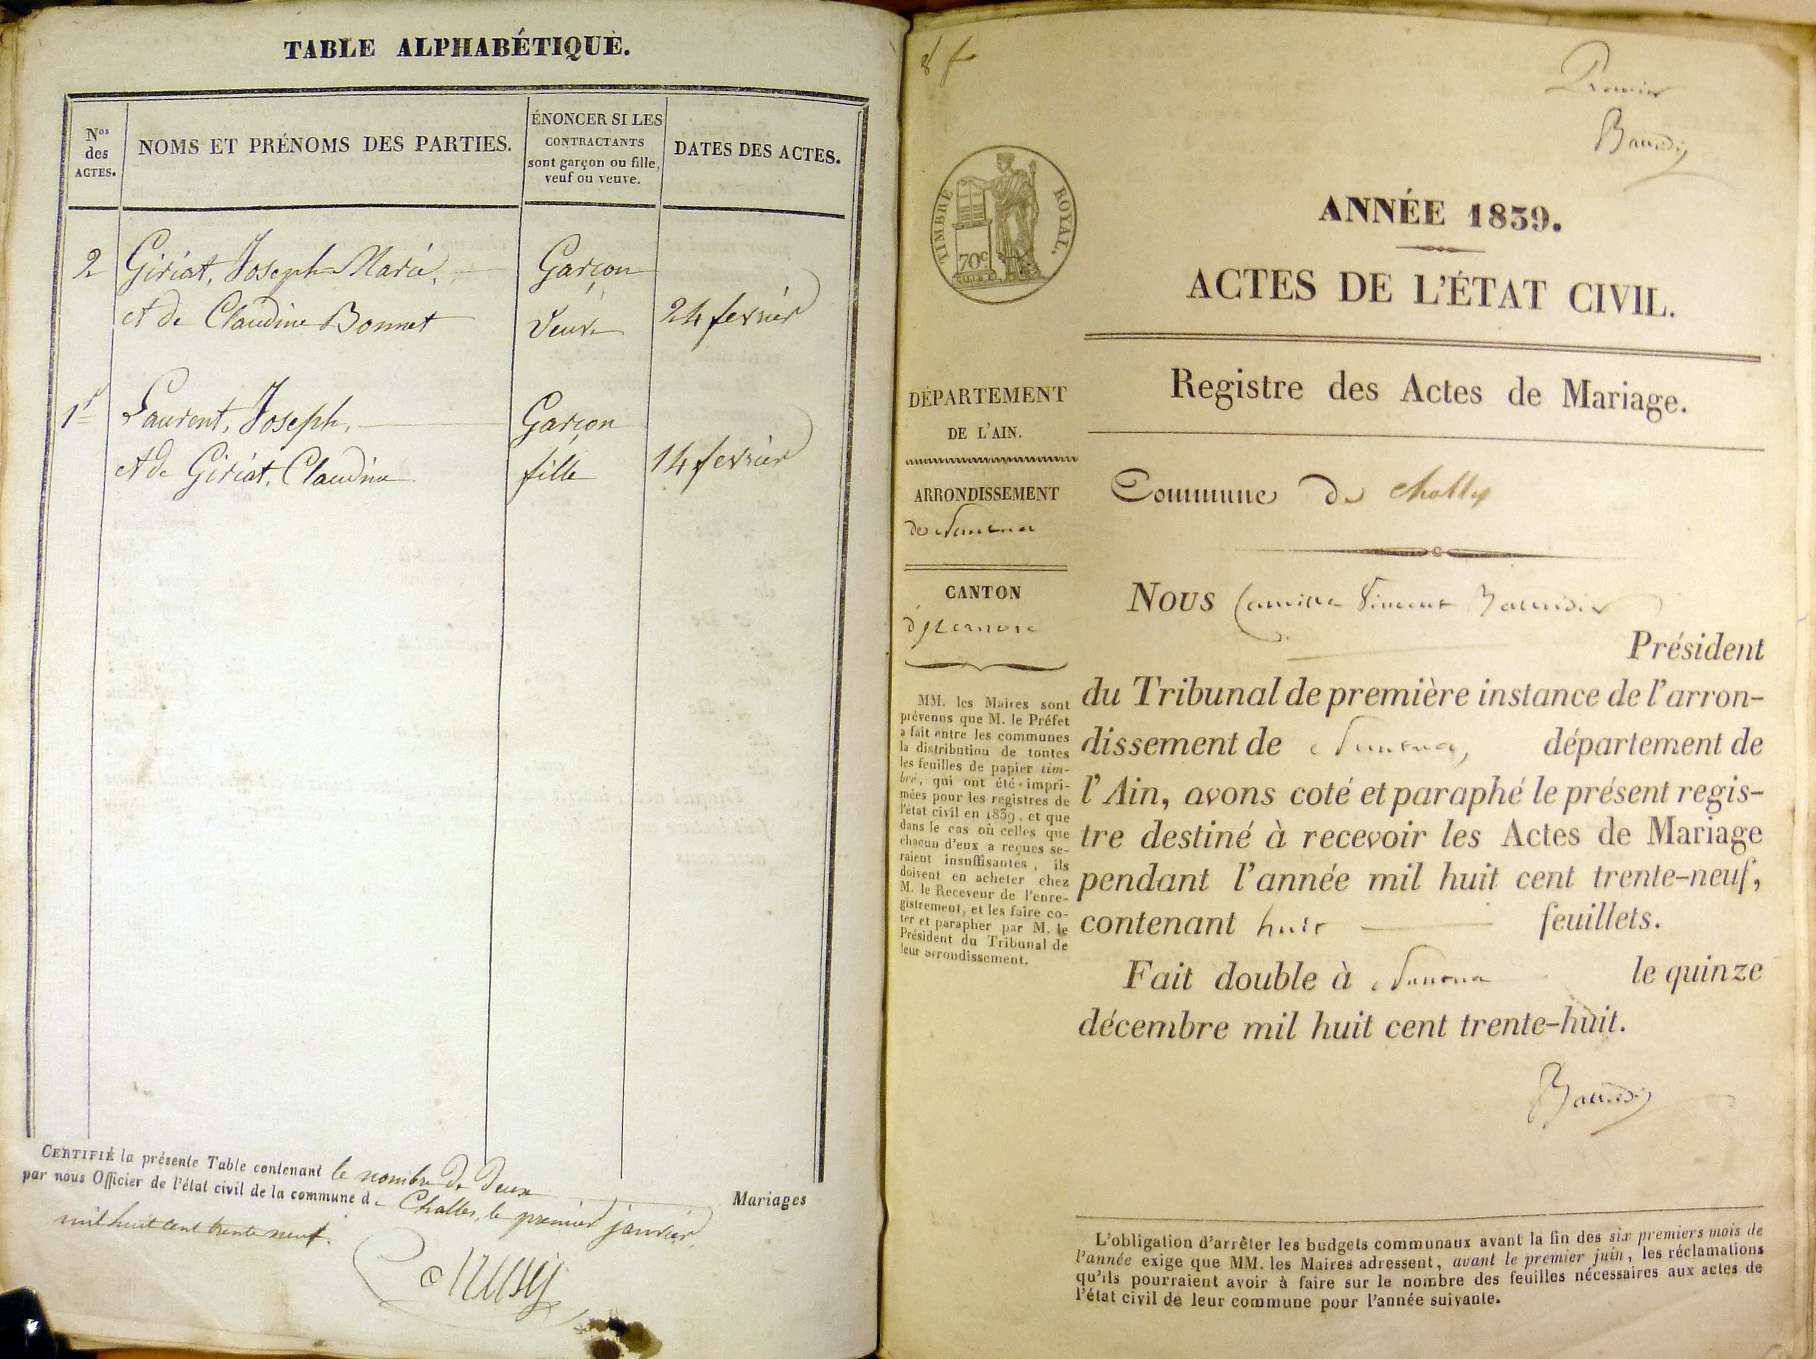 TABLE ALPHABÉTIQUE.
Nos des ACTES.
NOMS ET PRÉNOMS DES PARTIES.
ÉNONCER SI LES
CONTRACTANTS
sont garçon ou fille,
veuf ou veuve.
DATES DES ACTES.
2 Giriat, Joseph Marie, Garçon
et de Claudine Bonnet Veuve 24 fevrier
1er Laurent, Joseph, Garçon
et de Giriat, Claudine fille 14 fevrier
CERTIFIÉ la présente Table contenant le nombre de deux Mariages
par nous Officier de l'état civil de la commune d. Challes, le premier janvier
mil huit cent trente neuf.
8 f
Premier
Baudin
TIMBRE ROYAL.
70c
ANNÉE 1839.
ACTES DE L'ÉTAT CIVIL.
Registre des Actes de Mariage.
DÉPARTEMENT
DE L'AIN.
ARRONDISSEMENT
de Nantua
CANTON
d'izernore
MM. les Maires sont
prévenus que M. le Préfet
a fait entre les communes
la distribution de toutes
les feuilles de papier tim-
bré, qui ont été impri-
mées pour les registres de
l'état civil en 1839, et que
dans le cas où celles que
chacun d'eux a reçues se-
raient insuffisantes, ils
doivent en acheter chez
M. le Receveur de l'enre-
gistrement, et les faire co-
ter et parapher par M. le
Président du Tribunal de
leur arrondissement.
Commune de
Nous Camille Vincent
Président
du Tribunal de première instance de l'arron-
dissement de Nantua, département de
l'Ain, avons coté et paraphé le présent regis-
tre destiné à recevoir les Actes de Mariage
pendant l'année mil huit cent trente-neuf,
contenant huit feuillets.
Fait double à Nantua le quinze
décembre mil huit cent trente-huit.
Baudin
L'obligation d'arrêter les budgets communaux avant la fin des six premiers mois de
l'année exige que MM. les Maires adressent, avant le premier juin, les réclamations
qu'ils pourraient avoir à faire sur le nombre des feuilles nécessaires aux actes de
l'état civil de leur commune pour l'année suivante.